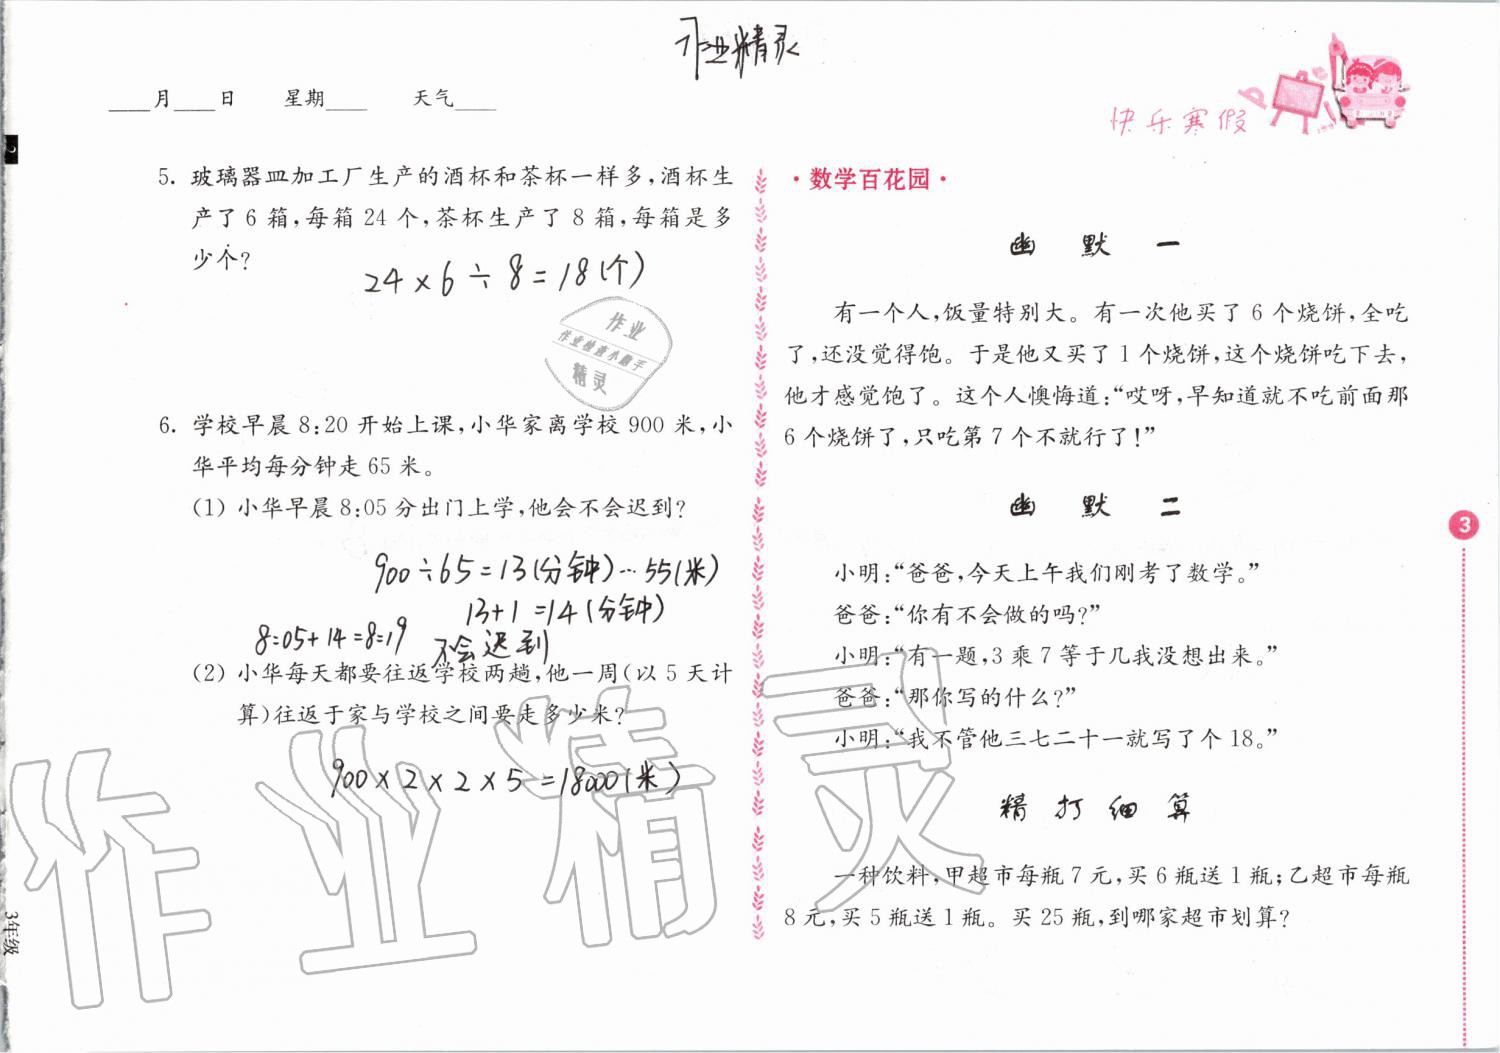 作业精灵
____月____日 星期____ 天气____
快乐寒假
5. 玻璃器皿加工厂生产的酒杯和茶杯一样多,酒杯生
产了 6 箱,每箱 24 个,茶杯生产了 8 箱,每箱是多
少个?
24×6÷8=18(个)
作业
作业检查小助手
精灵
6. 学校早晨 8:20 开始上课,小华家离学校 900 米,小
华平均每分钟走 65 米。
(1) 小华早晨 8:05 分出门上学,他会不会迟到?
900÷65=13(分钟)…55(米)
13+1=14(分钟)
8:05+14=8:19 不会迟到
(2) 小华每天都要往返学校两趟,他一周(以 5 天计
算)往返于家与学校之间要走多少米?
900×2×2×5=18000(米)
作业精灵
3年级
·数学百花园·
幽 默 一
有一个人,饭量特别大。有一次他买了 6 个烧饼,全吃
了,还没觉得饱。于是他又买了 1 个烧饼,这个烧饼吃下去,
他才感觉饱了。这个人懊悔道:“哎呀,早知道就不吃前面那
6 个烧饼了,只吃第 7 个不就行了!”
幽 默 二
小明:“爸爸,今天上午我们刚考了数学。”
爸爸:“你有不会做的吗?”
小明:“有一题,3 乘 7 等于几我没想出来。”
爸爸:“那你写的什么?”
小明:“我不管他三七二十一就写了个 18。”
精 打 细 算
一种饮料,甲超市每瓶 7 元,买 6 瓶送 1 瓶;乙超市每瓶
8 元,买 5 瓶送 1 瓶。买 25 瓶,到哪家超市划算?
3